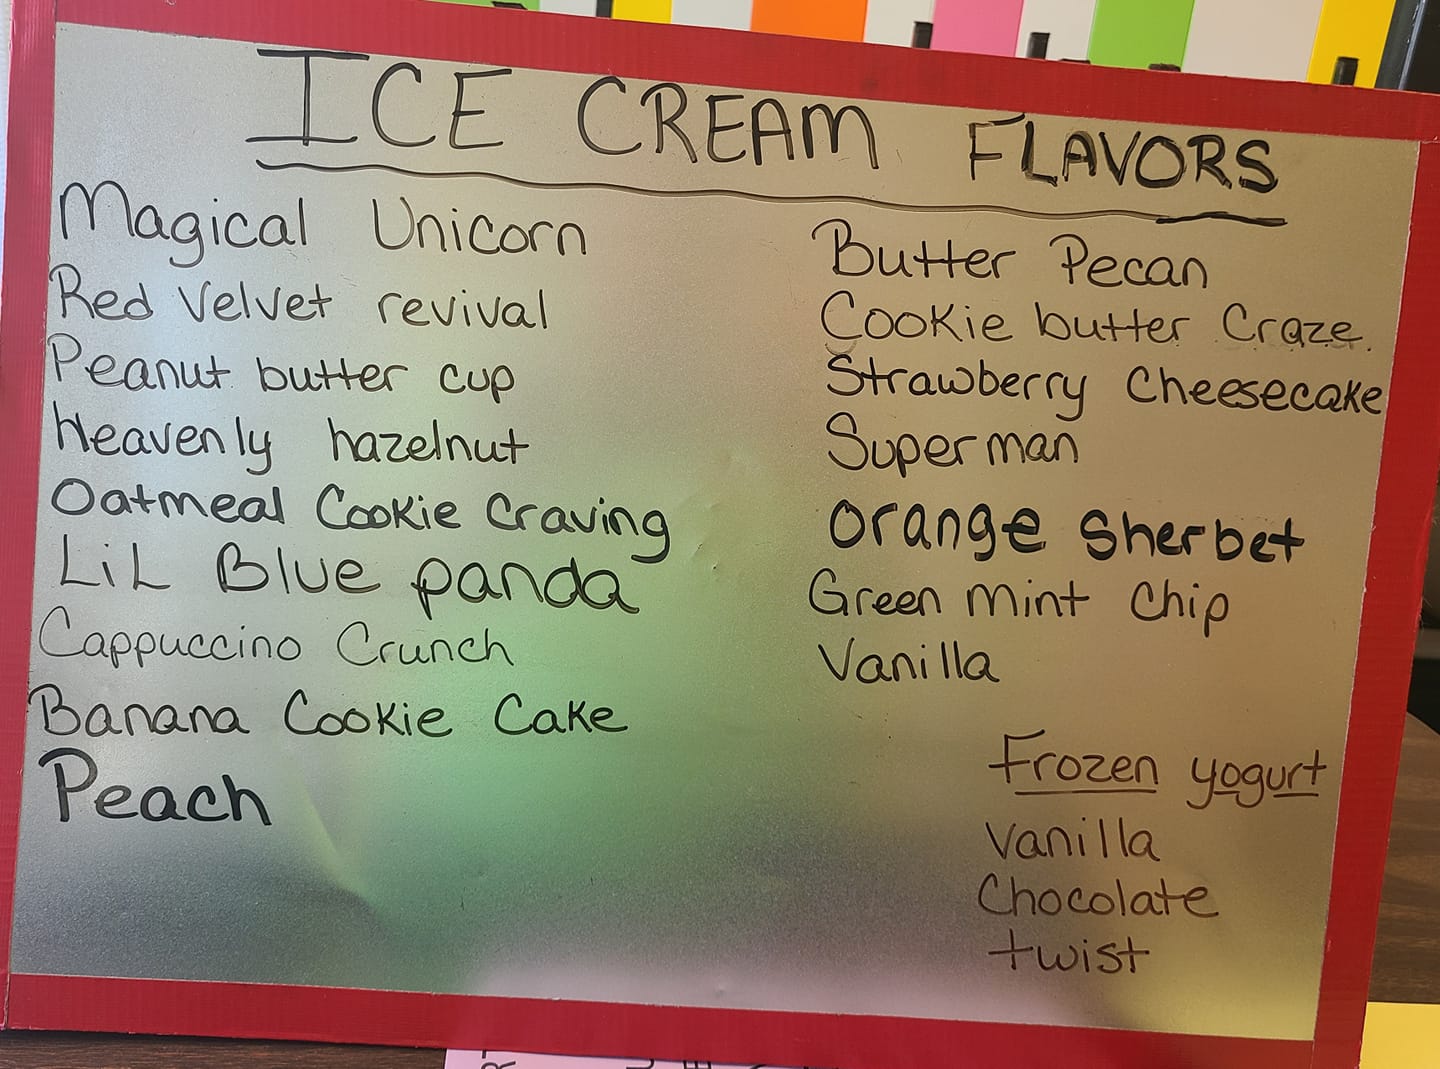 ICE CREAM FLAVORS
Magical Unicorn
Red Velvet revival
Peanut butter cup
Heavenly hazelnut
Oatmeal Cookie Craving
LiL Blue panda
Cappuccino Crunch
Banana Cookie Cake
Peach
Butter Pecan
Cookie butter Craze
Strawberry Cheesecake
Superman
Orange Sherbet
Green Mint Chip
Vanilla
Frozen yogurt
Vanilla
Chocolate
twist